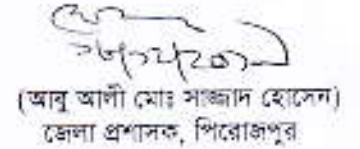 (আবু আলী মোঃ সাজ্জাদ হোসেন)
জেলা প্রশাসক, পিরোজপুর